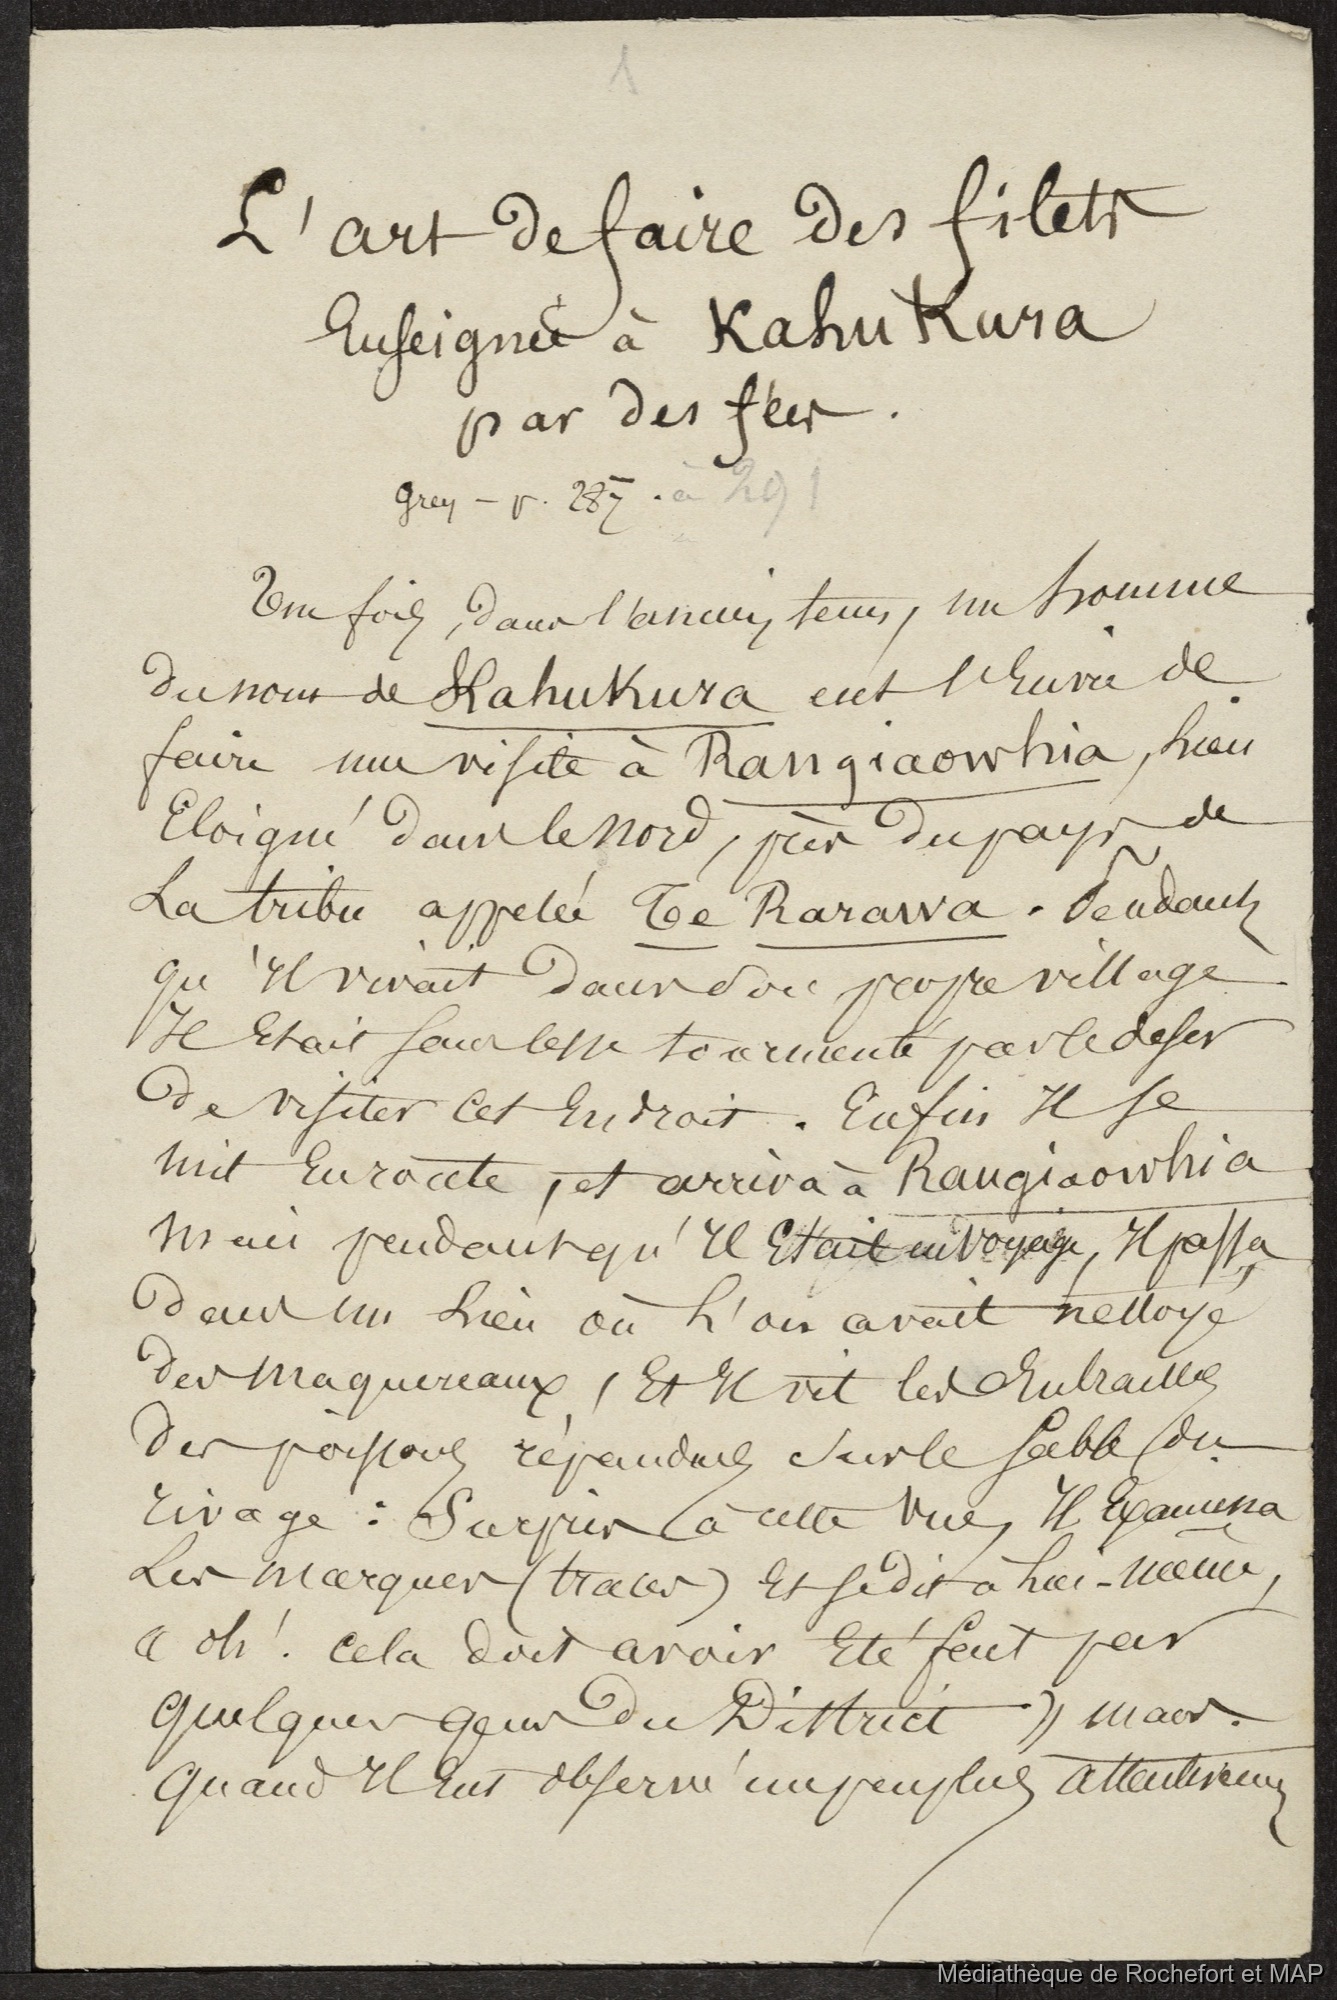 1
L'art de faire des filets
Enseigné à KahuKura
par des fées.
grey - p. 287. à 291
Une fois, dans l'ancien tems, un homme
du nom de KahuKura eut l'Envie de
faire une visite à Rangiaowhia, Lieu
Eloigné dans le nord, près du pays de
La tribu appelée Te Rarawa. Pendant
qu'Il vivait dans son propre village
Il Etait sans cesse tourmenté par le desir
de visiter cet Endroit. Enfin Il se
mit En route, et arriva à Rangiaowhia
mais pendant qu'Il Etait en voyage, Il passa
dans un Lieu où L'on avait nettoyé
des maquereaux, Et Il vit les Entrailles
des poissons répandues sur le sable du
rivage : Surpris à cette vue, Il Examina
Les marques (traces) Et se dit à Lui-même,
« oh! cela doit avoir Eté fait par
quelques gens du District » mais.
quand Il Eut observé un peu plus attentivement
Médiathèque de Rochefort et MAP